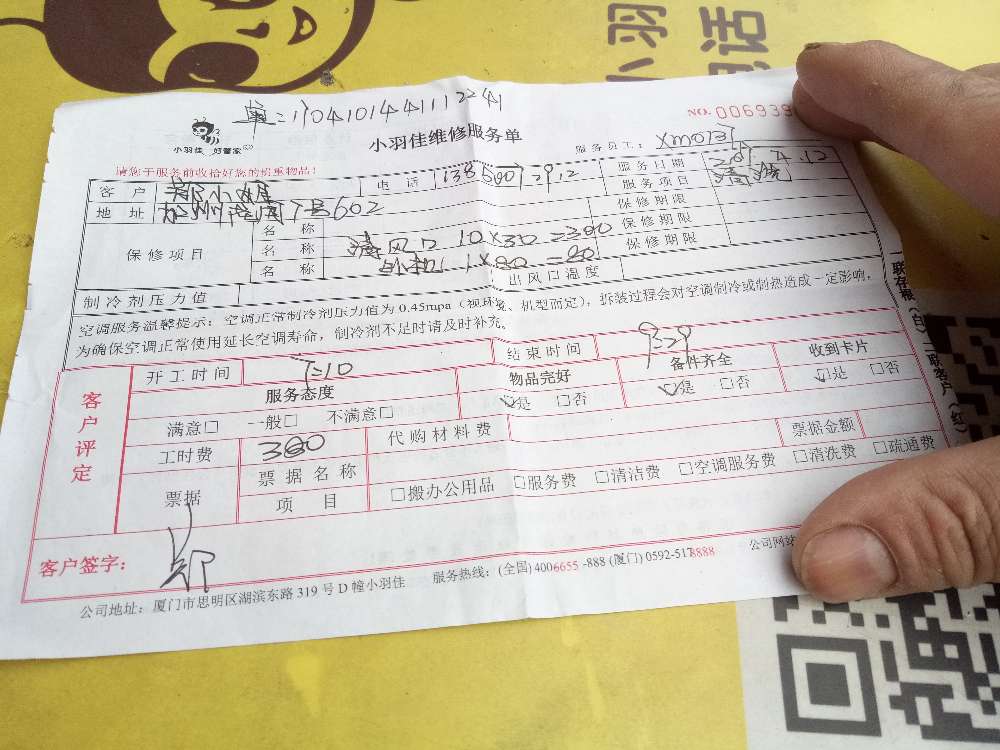 小羽
电话
单:1704101441112241
NO. 006939
小羽佳 好管家
小羽佳维修服务单
服务员工:
请您于服务前收拾好您的贵重物品!
客户 郑小姐 电话 服务日期
地址 7号602 服务项目 清洗
保修项目 名称 保修期限
名称 清风口 10×30=300 保修期限
名称 外机 1×80=80 保修期限
制冷剂压力值 出风口温度
空调服务温馨提示:空调正常制冷剂压力值为0.45mpa(视环境、机型而定),拆装过程会对空调制冷或制热造成一定影响,
为确保空调正常使用延长空调寿命,制冷剂不足时请及时补充。
客户评定
开工时间 7:10 结束时间
服务态度 物品完好 备件齐全 收到卡片
满意□ 一般□ 不满意□ ☑是 □否 ☑是 □否 ☑是 □否
工时费 380 代购材料费 票据金额
票据 票据名称
项目 □搬办公用品 □服务费 □清洁费 □空调服务费 □清洗费 □疏通费
客户签字: 郑
公司地址:厦门市思明区湖滨东路319号D幢小羽佳 服务热线:(全国)4006655-888 (厦门)0592-5178888 公司网站
一联存根(白) 二联客户(红)